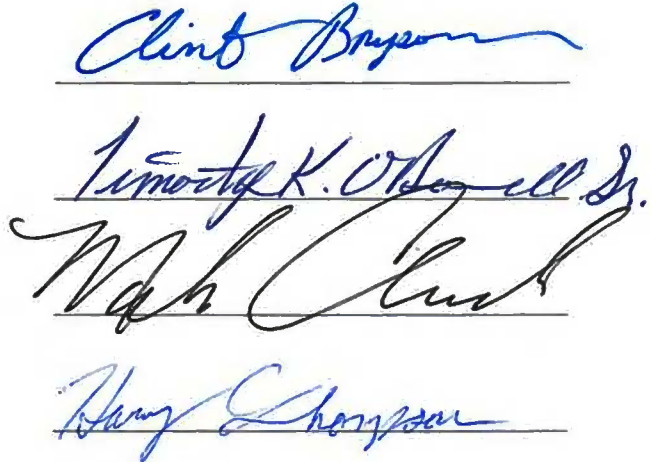 Clint Bryson
Timothy K. O'Donnell Sr.
Mark
Harry Thompson